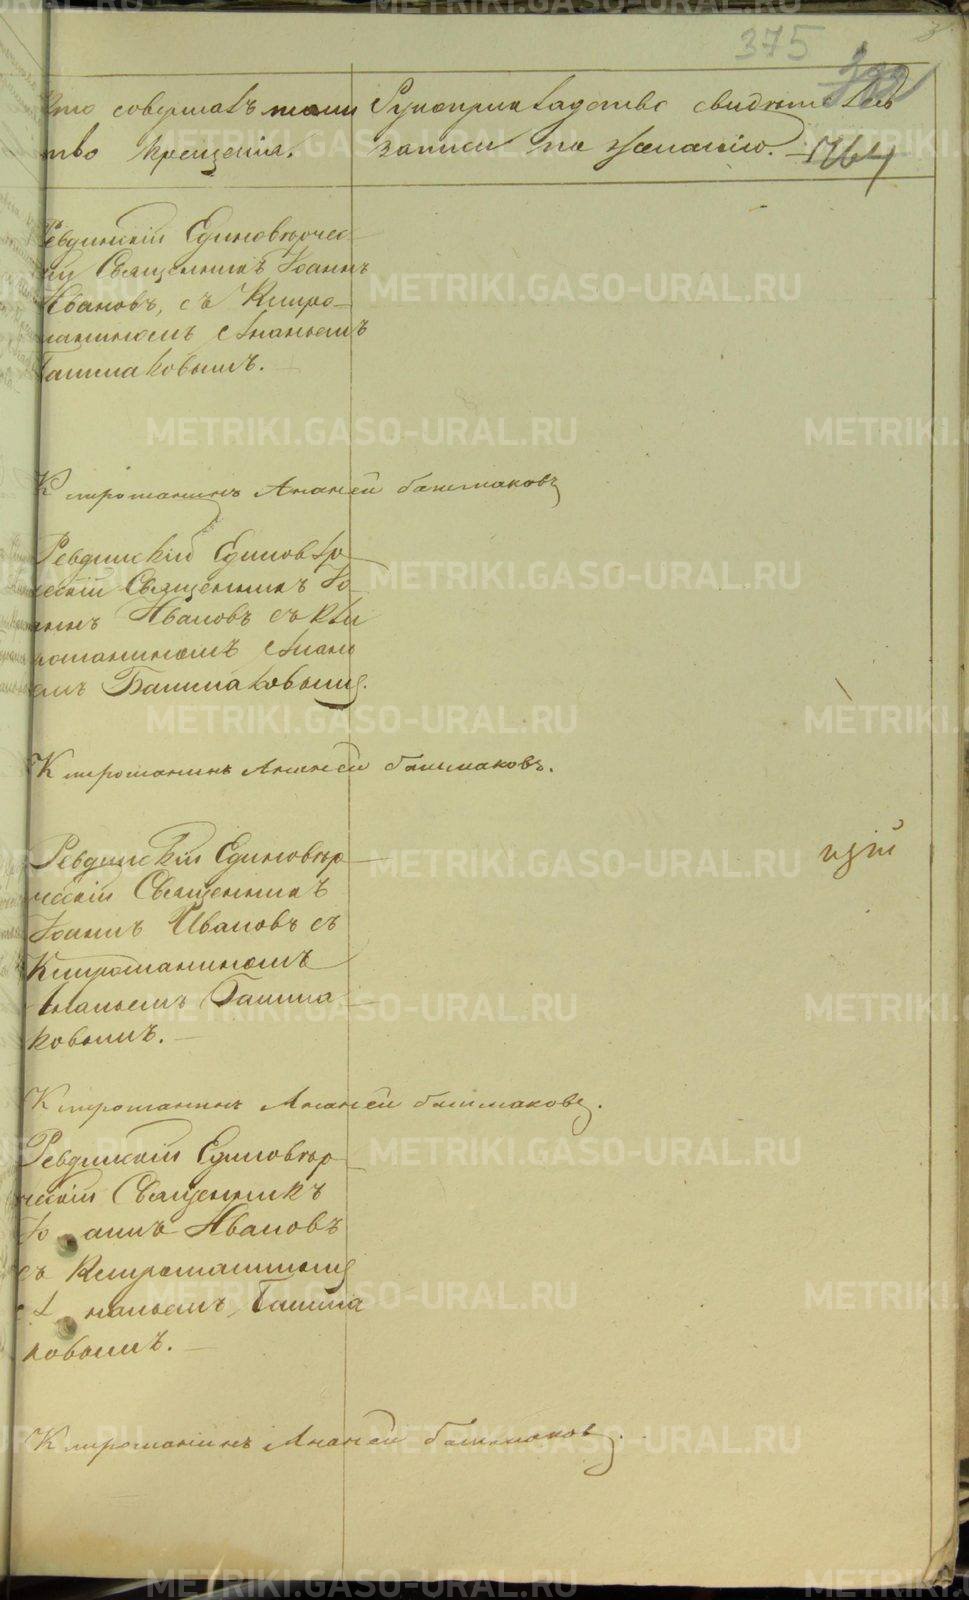 375
Кто совершалъ таин Рукоприкладство свидѣтель
тво крещенія. записи по желанію. 1764
Ревдинскій Единовѣрчес
ій Священникъ Іоаннъ
Ивановъ, съ Клиро
шаниномъ Ананьемъ
Башмаковымъ.
Клирошанинъ Ананей башмаковъ
Ревдинскій Единовѣр
ческій Священникъ Іо
аннъ Ивановъ съ Кли
рошаниномъ Анань
емъ Башмаковымъ.
Клирошанинъ Ананей башмаковъ.
Ревдинскій Единовѣр
ческій Священникъ
Іоаннъ Ивановъ съ
Клирошаниномъ
Ананьемъ Башма
ковымъ.
Клирошанинъ Ананей башмаковъ.
Ревдинскій Единовѣр
ческій Священникъ
Іоаннъ Ивановъ
съ Клирошаниномъ
Ананьемъ Башма
ковымъ.
Клирошанинъ Ананей башмаковъ.
METRIKI.GASO-URAL.RU